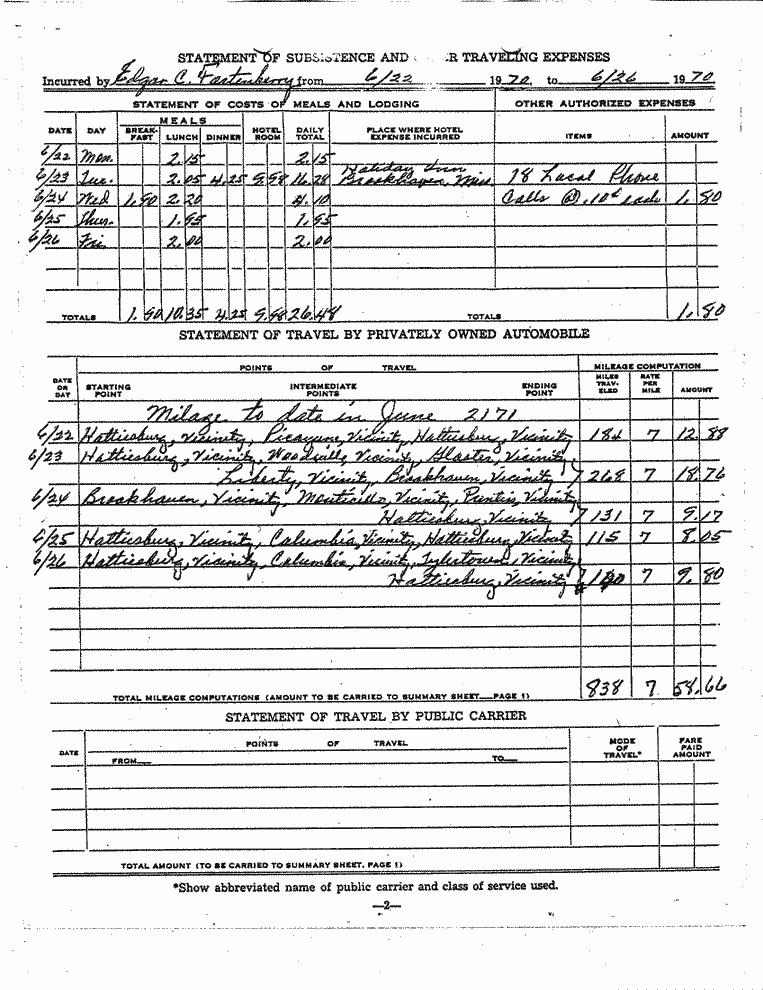 STATEMENT OF SUBSISTENCE AND R TRAVELING EXPENSES
Incurred by Edgar C. Fortenberry from 6/22 1970, to 6/26 1970
STATEMENT OF COSTS OF MEALS AND LODGING OTHER AUTHORIZED EXPENSES
MEALS
DATE DAY BREAK-FAST LUNCH DINNER HOTEL ROOM DAILY TOTAL PLACE WHERE HOTEL EXPENSE INCURRED ITEMS AMOUNT
6/22 Mon. 2.15 2.15
6/23 Tue. 2.05 4.25 9.98 16.28 Holiday Inn Brookhaven, Miss 18 Local Phone
6/24 Wed 1.90 2.20 4.10 Calls @ .10¢ each 1.80
6/25 Thur. 1.95 1.95
6/26 Fri. 2.00 2.00
TOTALS 1.90 10.35 4.25 9.98 26.48 TOTALS 1.80
STATEMENT OF TRAVEL BY PRIVATELY OWNED AUTOMOBILE
POINTS OF TRAVEL MILEAGE COMPUTATION
DATE OR DAY STARTING POINT INTERMEDIATE POINTS ENDING POINT MILES TRAV-ELED RATE PER MILE AMOUNT
Milage to date in June 2171
6/22 Hattiesburg, Vicinity, Picayune, Vicinity, Hattiesburg, Vicinity 184 7 12.88
6/23 Hattiesburg, Vicinity, Woodville, Vicinity, Gloster, Vicinity,
Liberty, Vicinity, Brookhaven, Vicinity 268 7 18.76
6/24 Brookhaven, Vicinity, Monticello, Vicinity, Prentiss, Vicinity
Hattiesburg, Vicinity 131 7 9.17
6/25 Hattiesburg, Vicinity, Columbia, Vicinity, Hattiesburg, Vicinity 115 7 8.05
6/26 Hattiesburg, Vicinity, Columbia, Vicinity, Tylertown, Vicinity
Hattiesburg, Vicinity 7 9.80
TOTAL MILEAGE COMPUTATIONS (AMOUNT TO BE CARRIED TO SUMMARY SHEET—PAGE 1) 838 7 58.66
STATEMENT OF TRAVEL BY PUBLIC CARRIER
DATE POINTS OF TRAVEL MODE OF TRAVEL* FARE PAID AMOUNT
FROM— TO—
TOTAL AMOUNT (TO BE CARRIED TO SUMMARY SHEET, PAGE 1)
*Show abbreviated name of public carrier and class of service used.
—2—